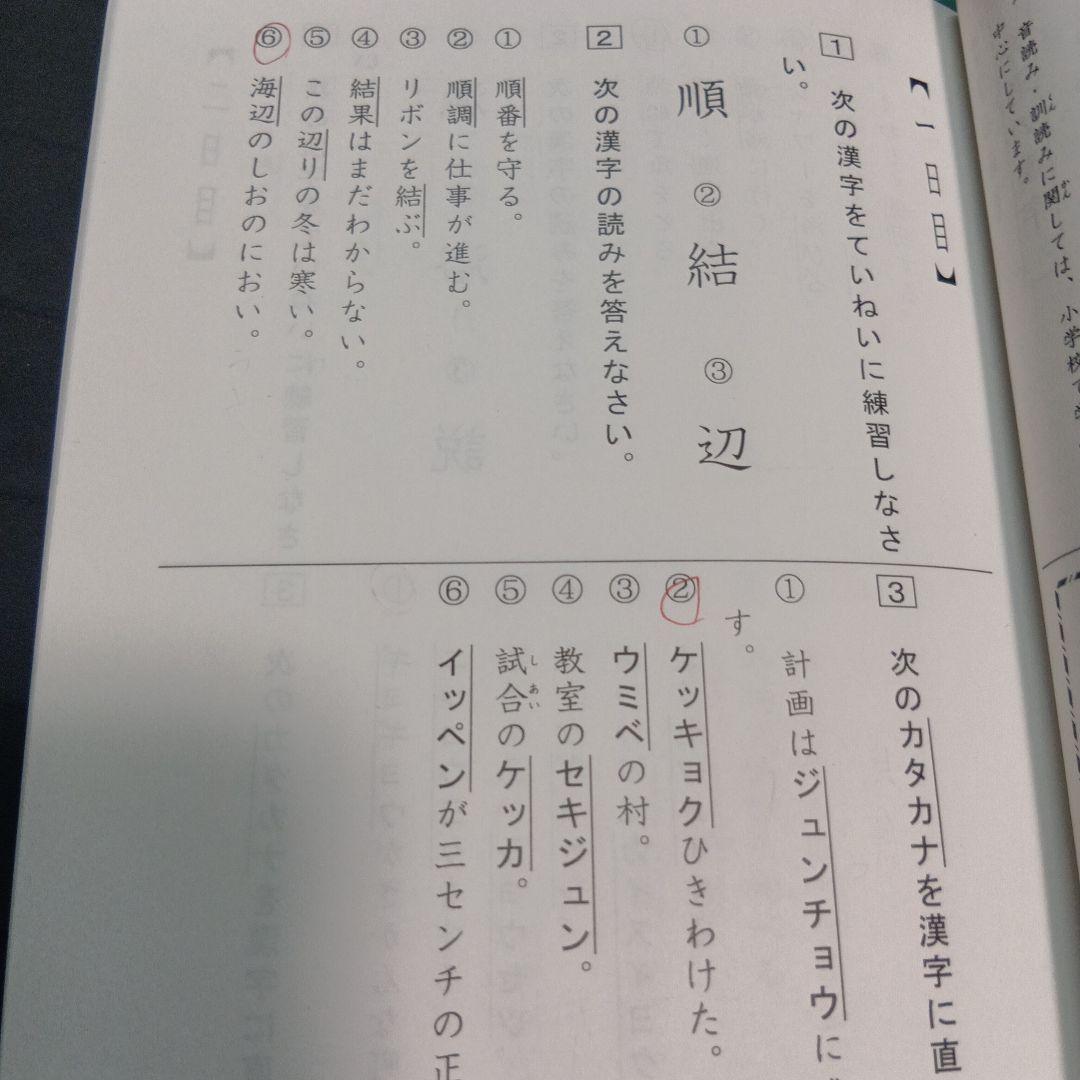 音読み・訓読みに関しては、小学校で
中心にしています。
【一日目】
1 次の漢字をていねいに練習しなさ
い。
① 順 ② 結 ③ 辺
2 次の漢字の読みを答えなさい。
① 順番を守る。
② 順調に仕事が進む。
③ リボンを結ぶ。
④ 結果はまだわからない。
⑤ この辺りの冬は寒い。
⑥ 海辺のしおのにおい。
3 次のカタカナを漢字に直
① 計画はジュンチョウに
す。
② ケッキョクひきわけた。
③ ウミベの村。
④ 教室のセキジュン。
⑤ 試合のケッカ。
しあい
⑥ イッペンが三センチの正